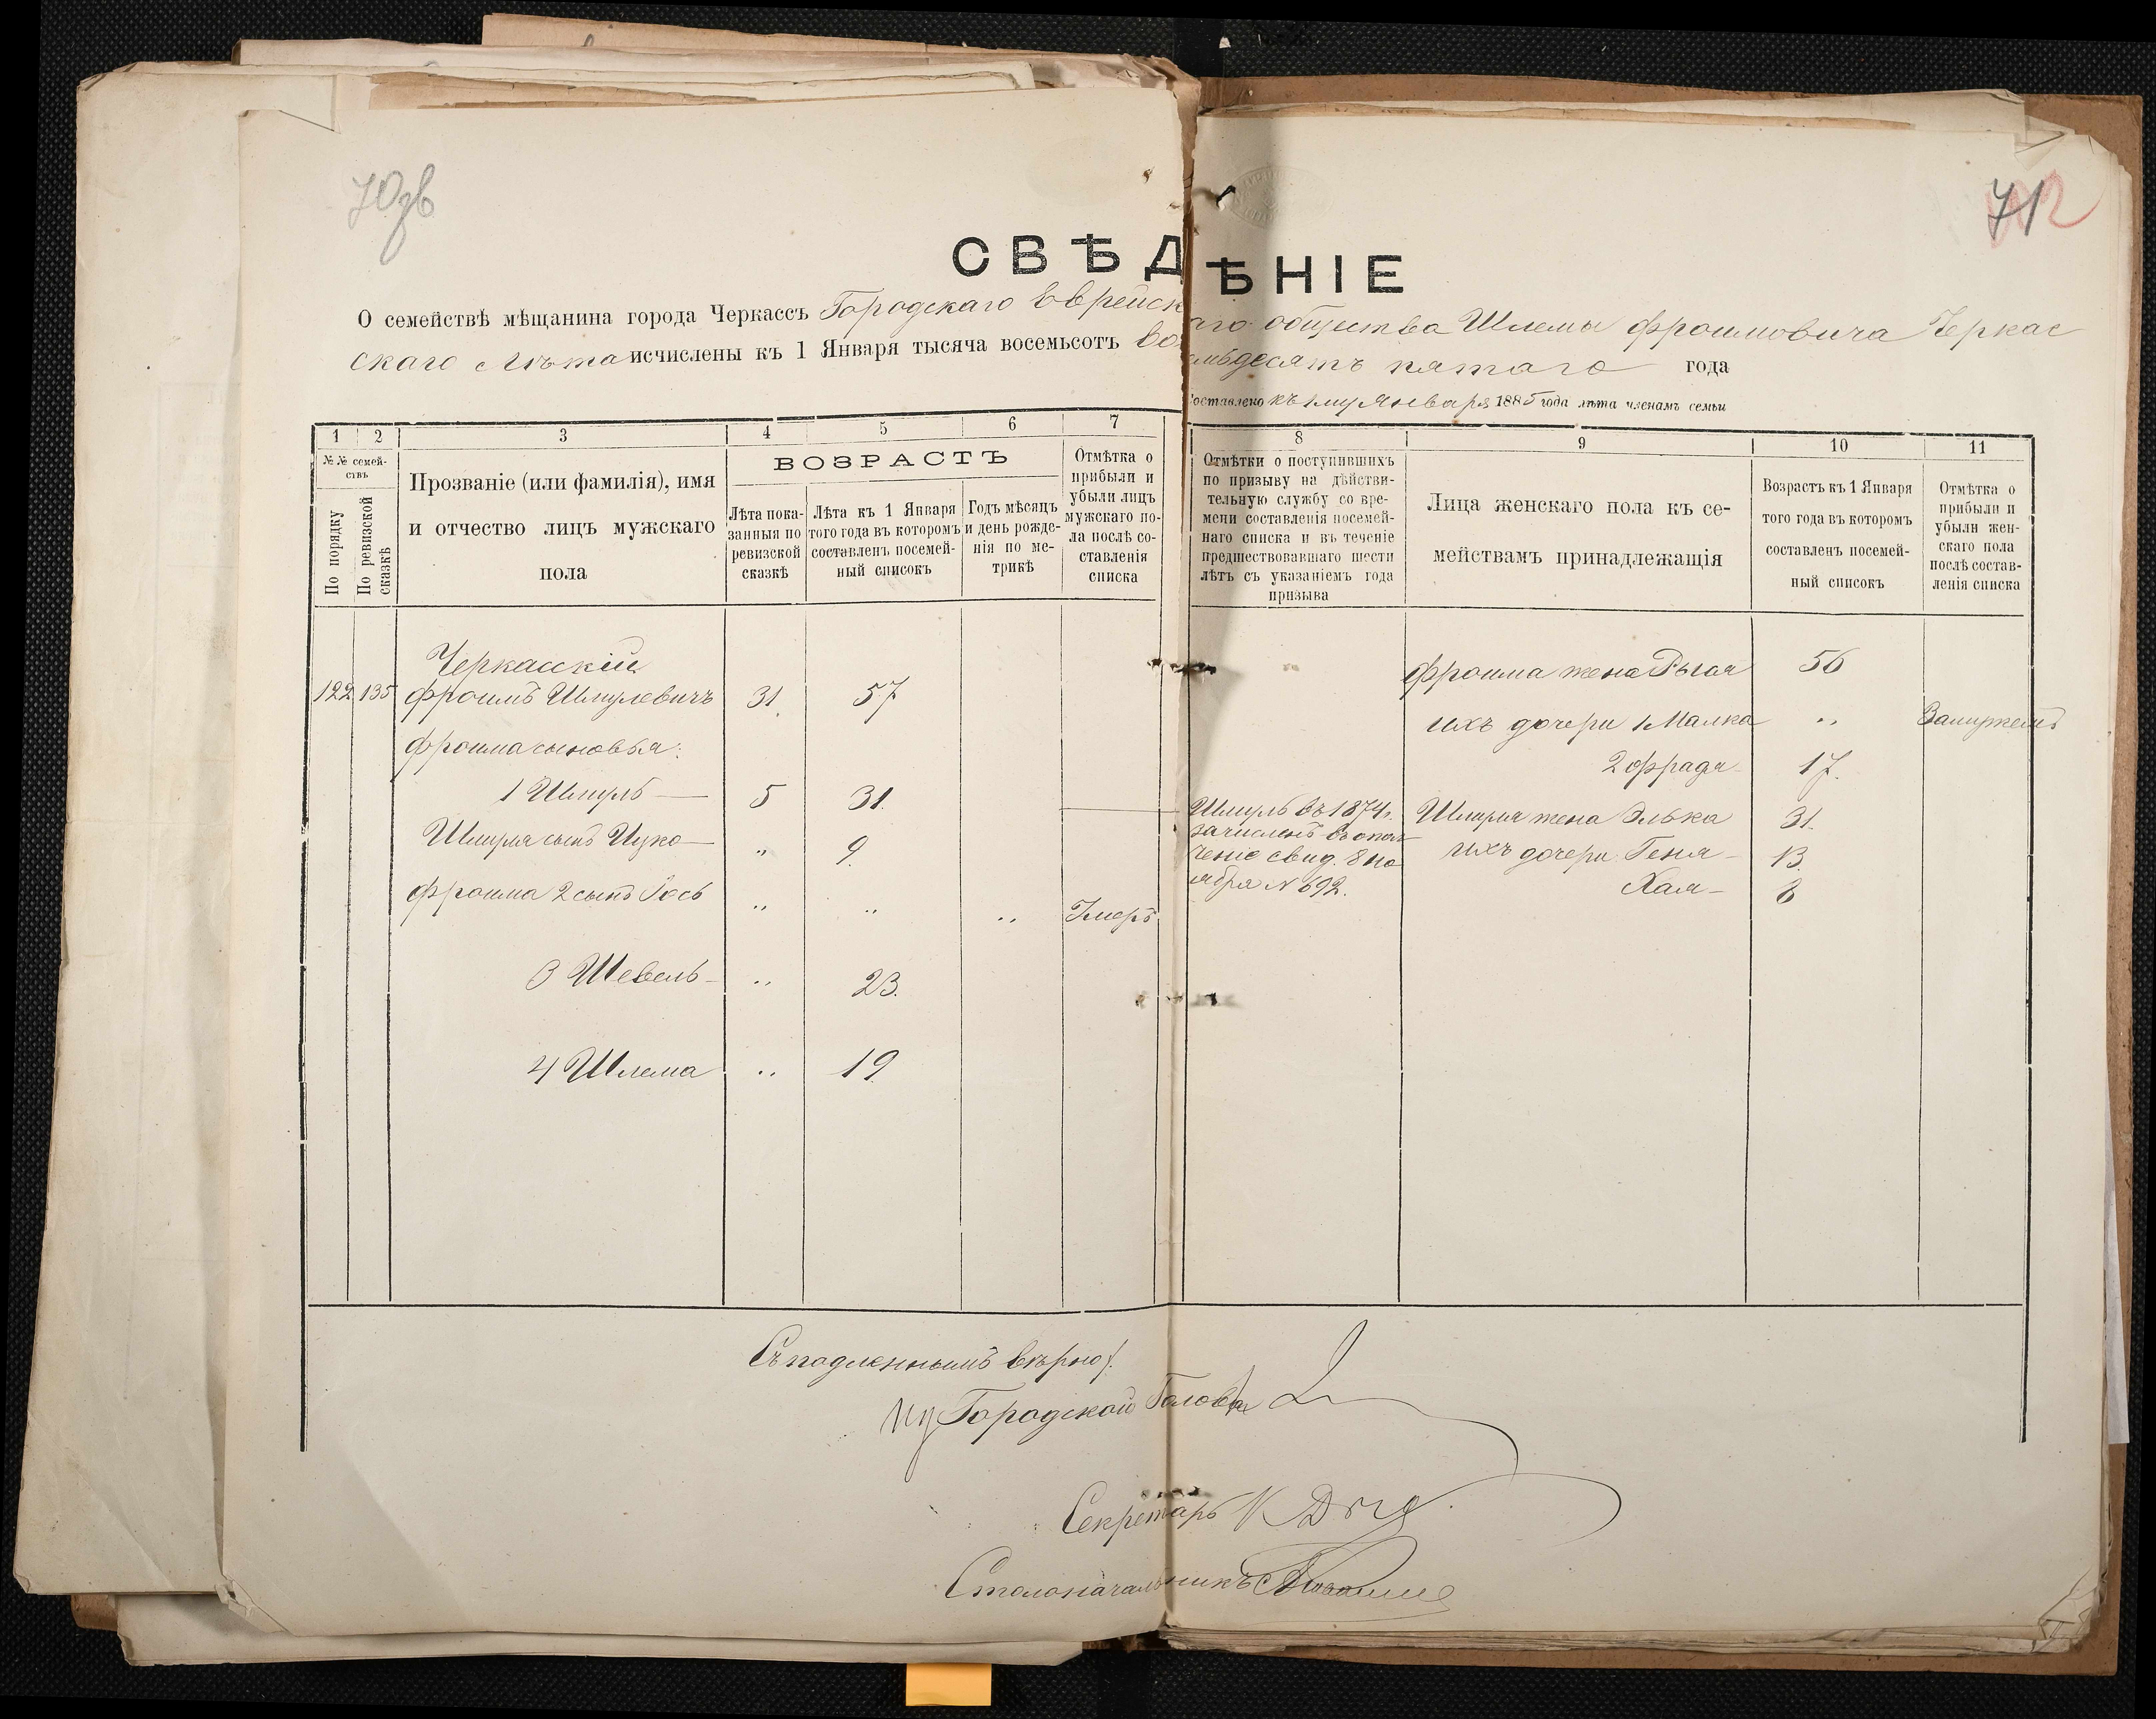 70зв
71
СВѢДѢНІЕ
О семействѣ мѣщанина города Черкассъ Городскаго Еврейскаго общества Шлемы Фроимовича Черкас
скаго Лѣта исчислены къ 1 Января тысяча восемьсотъ восмьдесятъ пятаго года
составлено къ 1му Января 1885 года лѣта членамъ семьи
1 2 3 4 5 6 7 8 9 10 11
№№ семей-
ствъ
По порядку
По ревизской
сказкѣ
Прозваніе (или фамилія), имя
и отчество лицъ мужскаго
пола
ВОЗРАСТЪ
Лѣта пока-
занныя по
ревизской
сказкѣ
Лѣта къ 1 Января
того года въ которомъ
составленъ посемей-
ный списокъ
Годъ мѣсяцъ
и день рожде-
нія по ме-
трикѣ
Отмѣтка о
прибыли и
убыли лицъ
мужскаго по-
ла послѣ со-
ставленія
списка
Отмѣтки о поступившихъ
по призыву на дѣйстви-
тельную службу со вре-
мени составленія посемей-
наго списка и въ теченіе
предшествовавшаго шести
лѣтъ съ указаніемъ года
призыва
Лица женскаго пола къ се-
мействамъ принадлежащія
Возрастъ къ 1 Января
того года въ которомъ
составленъ посемей-
ный списокъ
Отмѣтка о
прибыли и
убыли жен-
скаго пола
послѣ состав-
ленія списка
Черкасскій
122 135 Фроимъ Шмулевичъ 31 57
Фроима сыновья:
1 Шмуль — 5 31.
Шмуля сынъ Ицко — „ 9.
Фроима 2 сынъ Іось „ „ „ Умеръ
3 Шевель - „ 23.
4 Шлема „ 19.
Шмуль въ 1874 г.
зачисленъ въ опол-
ченіе свид. 8 но
ября № 692.
Фроима жена Рыся 56
ихъ дочери 1 Малка „ Замужемъ
2 Фрада - 17.
Шмуля жена Элька 31.
ихъ дочери Геня - 13.
Хая - 8
Съ подленнымъ вѣрно:
Городской Голова
Секретарь
Столоначальникъ